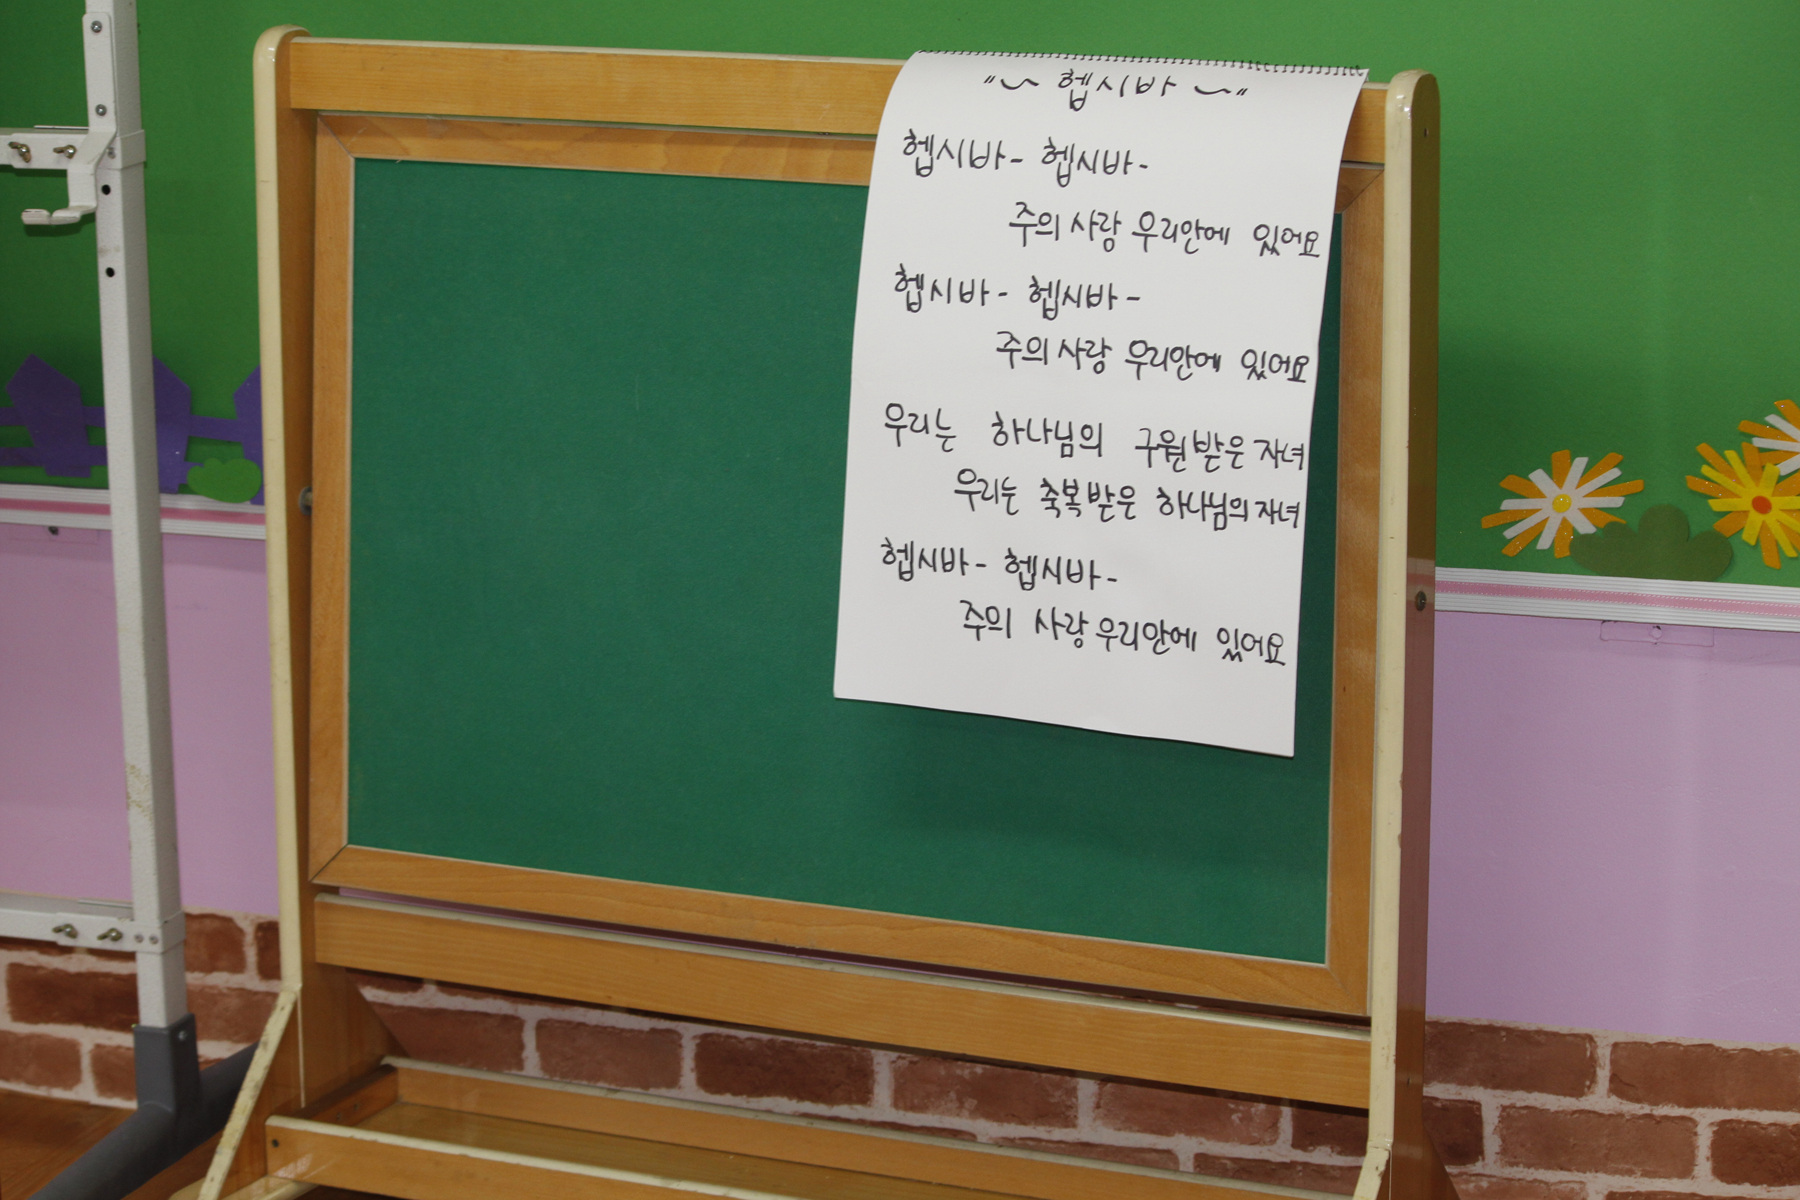 "~ 헵시바 ~"
헵시바- 헵시바-
주의 사랑 우리안에 있어요
헵시바- 헵시바-
주의 사랑 우리안에 있어요
우리는 하나님의 구원받은 자녀
우리는 축복받은 하나님의 자녀
헵시바- 헵시바-
주의 사랑 우리안에 있어요